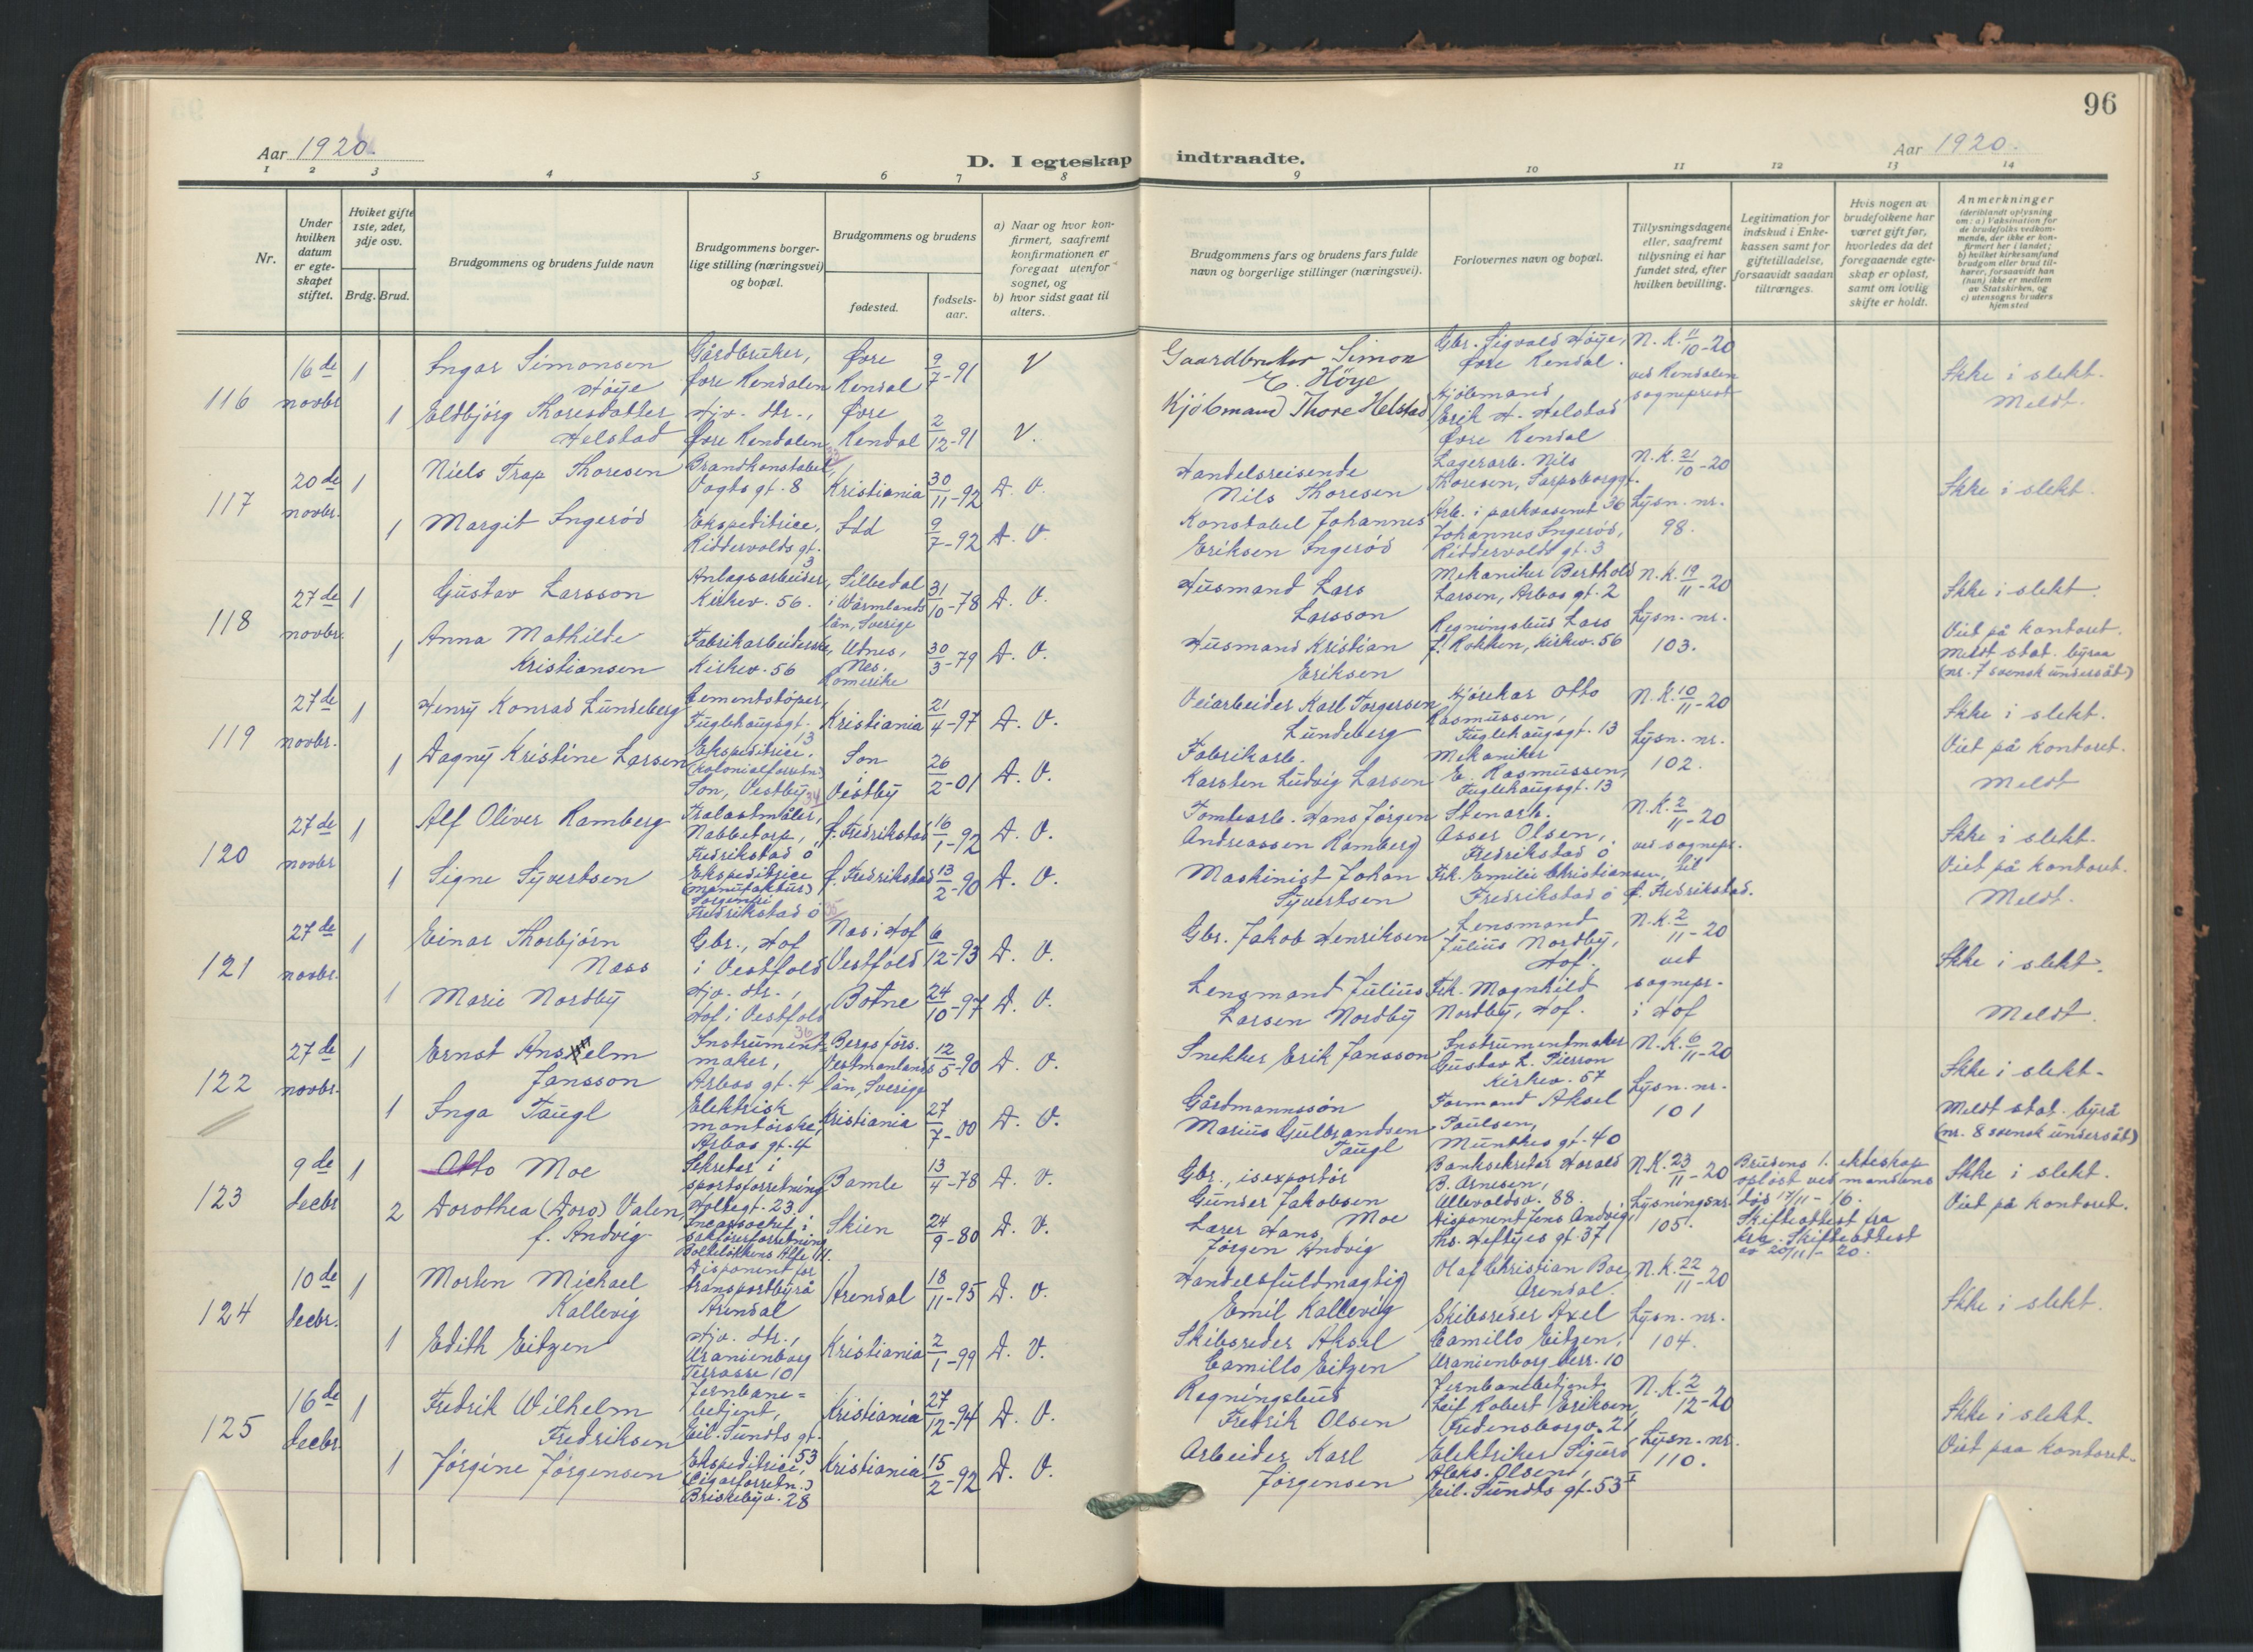 96
Aar 1920.
D. I egteskap indtraadte.
Aar 1920.
1 2 3 4 5 6 7 8 9 10 11 12 13 14
Nr.
Under hvilken datum er egteskapet stiftet.
Hviket gifte 1ste, 2det, 3dje osv.
Brdg. Brud.
Brudgommens og brudens fulde navn
Brudgommens borgerlige stilling (næringsvei) og bopæl.
Brudgommens og brudens
fødested.
fødselsaar.
a) Naar og hvor konfirmert, saafremt konfirmationen er foregaat utenfor sognet, og
b) hvor sidst gaat til alters.
Brudgommens fars og brudens fars fulde navn og borgerlige stillinger (næringsvei).
Forlovernes navn og bopæl.
Tillysningsdagene eller, saafremt tillysning ei har fundet sted, efter hvilken bevilling.
Legitimation for indskud i Enkekassen samt for giftetilladelse, forsaavidt saadan tiltrænges.
Hvis nogen av brudefolkene har været gift før, hvorledes da det foregaaende egteskap er opløst, samt om lovlig skifte er holdt.
Anmerkninger
(deriblandt oplysning om: a) Vaksination for de brudefolks vedkommende, der ikke er konfirmert her i landet; b) hvilket kirkesamfund brudgom eller brud tilhører, forsaavidt han (hun) ikke er medlem av Statskirken, og c) utensogns bruders hjemsted
116
16de novbr
1
Ingar Simonsen Høye
Gårdbruker, Øvre Rendalen
Øvre Rendal
9/7-91
V
Gaardbruker Simon E. Høye
Gbr. Sigvald Høye, Øvre Rendal.
N. K. 11/10-20
ved Rendalen sogneprest
Ikke i slekt.
Meldt.
1
Eldbjörg Thoresdatter Helstad
Hjv. dtr., Øvre Rendalen
Øvre Rendal
2/12-91
V.
Kjöbmand Thore Helstad
Kjöbmand Erik H. Helstad Øvre Rendal
117
20de novbr.
1
Niels Trap Thoresen
Brandkonstabel, Vogts gt. 8
33
Kristiania
30/11-92
D. V.
Handelsreisende Nils Thoresen
Lagerarb. Nils Thoresen, Sarpsborggt.
N. K. 21/10-20
Lysn. nr. 98.
Ikke i slekt.
1
Margit Ingeröd
Ekspeditrice, Riddervolds gt. 3
Idd
9/7-92
D. V.
Konstabel Johannes Eriksen Ingeröd
Arb. i parkvæsenet 36 Johannes Ingeröd, Riddervolds gt. 3
118
27de novbr.
1
Gustav Larsson
Anlægsarbeider, Kirkev. 56.
Silbodal i Wärmlands län, Sverige
31/10-78
D. V.
Husmand Lars Larsson
Mekaniker Berthold Larsen, Arbos gt. 2
N. K. 19/11-20
Lysn. nr. 103.
Ikke i slekt.
Viet på kontoret.
Meldt stat. byraa
(nr. 7 svensk undersåt)
1
Anna Mathilde Kristiansen
Fabrikarbeiderske, Kirkev. 56
Udnes, Nes, Romerike
30/3-79
D. V.
Husmand Kristian Eriksen
Regningsbud Lars J. Rokken, Kirkev. 56
119
27de novbr.
1
Henry Konrad Lundeberg
Cementstöper, Fuglehaugsgt. 13
Kristiania
21/4-97
D. V.
Veiarbeider Karl Torgersen Lundeberg
Kjörekar Otto Rasmussen, Fuglehaugsgt. 13
N. K. 10/11-20
Lysn. nr. 102.
Ikke i slekt.
Viet på kontoret.
Meldt
1
Dagny Kristine Larsen
Ekspeditrice, (kolonialforretn.) Son, Vestby
34
Son i Vestby
26/2-01
D. V.
Fabrikarb. Karsten Ludvig Larsen
Mekaniker E. Rasmussen, Fuglehaugsgt. 13
120
27de novbr
1
Alf Oliver Ramberg
Trælastmåler, Nabbetorp, Fredrikstad ö
f. Fredrikstad
16/1-92
D. V.
Tomtearb. Hans Jörgen Andreassen Ramberg
Stenarb. Asser Olsen, Fredrikstad ö
N. K. 2/11-20
ved sognepr. til f. Fredrikstad.
Ikke i slekt.
Viet på kontoret.
Meldt.
1
Signe Syvertsen
Ekspeditrice (manufaktur) Fredrikstad ö
35
f. Fredrikstad
13/2-90
D. V.
Maskinist Johan Syvertsen
Frk. Emilie Christiansen, Fredrikstad ö
121
27de novbr.
1
Einar Thorbjörn Næss
Gbr., Hof i Vestfold
Næs i Hof Vestfold
6/12-93
D. V.
Gbr. Jakob Henriksen
Lensmand Julius Nordby, Hof.
N. K. 2/11-20
ved sognepr. i Hof
Ikke i slekt.
Meldt.
1
Marie Nordby
Hjv. dtr., Hof i Vestfold
36
Botne
24/10-97
D. V.
Lensmand Julius Larsen Nordby
Frk. Magnhild Nordby, Hof.
122
27de novbr.
1
Ernst Anselm Jansson
Instrumentmaker, Arbos gt. 4
Bergs förs. Vestmanlands län, Sverige
12/5-90
D. V.
Snekker Erik Jansson
Instrumentmaker Gustav L. Pierson Kirkev. 57
N. K. 6/11-20
Lysn. nr. 101
Ikke i slekt.
Meldt stat. byrå
(nr. 8 svensk undersåt)
1
Inga Taugl
Elektrisk montörske, Arbos gt. 4
Kristiania
27/7-00
D. V.
Gårdmannssön Marius Gulbrandsen Taugl
Formand Aksel Paulsen, Munthes gt. 40
123
9de decbr
1
Otto Moe
Sekretær i sportsforretning Holtegt. 23.
Bamle
13/4-78
D. V.
Gbr., iseksportör Gunder Jakobsen Moe
Banksekretær Harald B. Arnesen, Ullevoldsv. 88.
N. K. 23/11-20
Lysningsnr. 105.
Brudens 1. ekteskap oplöst ved mandens död 17/11-16.
Skifteattest fra Kra. Skifteattest av 20/11-20.
Ikke i slekt.
Viet på kontoret.
2
Dorothea (Doro) Valen, f. Andvig
Incassochef i sakförerforretning Bolteløkkens Allé 11.
Skien
24/9-80
D. V.
Lærer Hans Jörgen Andvig
Disponent Jens Andvig, Ths. Heftyes gt. 37
124
10de decbr.
1
Morten Michael Kallevig
Disponent for transportbyrå Arendal
Arendal
18/11-95
D. V.
Handelsfuldmægtig Emil Kallevig
Olaf Christian Boe, Arendal.
N. K. 22/11-20
Lysn. nr. 104.
Ikke i slekt.
1
Edith Eitzen
Hjv. dtr., Uranienborg Terrasse 10
Kristiania
2/1-99
D. V.
Skibsreder Aksel Camillo Eitzen
Skibsreder Axel Camillo Eitzen, Uranienborg Terr. 10
125
16de decbr.
1
Fredrik Wilhelm Fredriksen
Jernbanebetjent, Eil. Sundts gt. 53
Kristiania
27/12-94
D. V.
Regningsbud Fredrik Olsen
Jernbanebetjent Leif Robert Eriksen, Fredensborgv. 21
N. K. 2/12-20
Lysn. nr. 110.
Ikke i slekt.
Viet paa kontoret.
1
Jörgine Jörgensen
Ekspeditrice, (Cigarforretn.) Briskebyv. 28
Kristiania
15/2-92
D. V.
Arbeider Karl Jörgensen
Elektriker Sigurd Aleks. Olsen, Eil. Sundts gt. 53 I